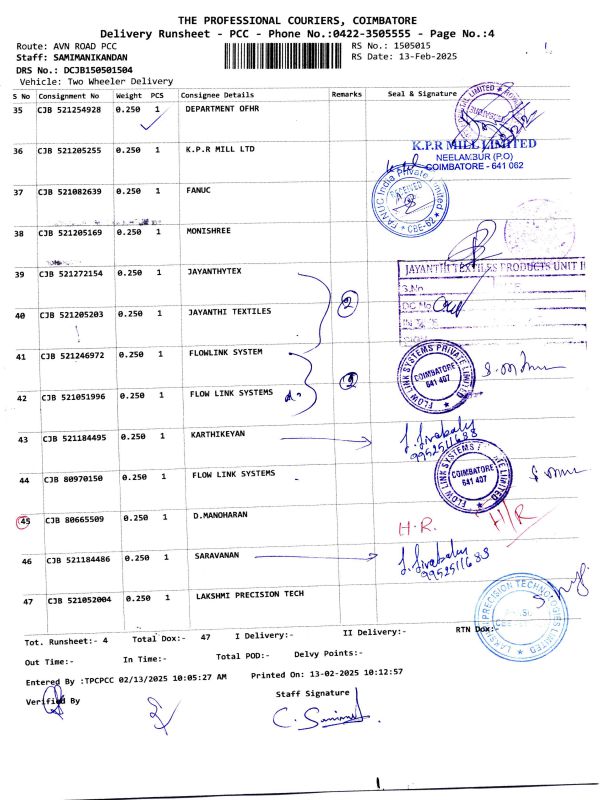 THE PROFESSIONAL COURIERS, COIMBATORE
Delivery Runsheet - PCC - Phone No.:0422-3505555 - Page No.:4
Route: AVN ROAD PCC
RS No.: 1505015
Staff: SAMIMANIKANDAN
RS Date: 13-Feb-2025
DRS No.: DCJB150501504
Vehicle: Two Wheeler Delivery
S No Consignment No Weight PCS Consignee Details Remarks Seal & Signature
35 CJB 521254928 0.250 1 DEPARTMENT OFHR
36 CJB 521205255 0.250 1 K.P.R MILL LTD
K.P.R MILL LIMITED
NEELAMBUR (P.O)
COIMBATORE - 641 062
37 CJB 521082639 0.250 1 FANUC
FANUC India Private Limited
RECEIVED
CBE-62
38 CJB 521205169 0.250 1 MONISHREE
39 CJB 521272154 0.250 1 JAYANTHYTEX
JAYANTHI TEXTILES PRODUCTS UNIT II
S.No
DC No
40 CJB 521205203 0.250 1 JAYANTHI TEXTILES 2
41 CJB 521246972 0.250 1 FLOWLINK SYSTEM
FLOW LINK SYSTEMS PRIVATE LIMITED
COIMBATORE
641 407
42 CJB 521051996 0.250 1 FLOW LINK SYSTEMS 2
43 CJB 521184495 0.250 1 KARTHIKEYAN
J. Sivabalan
9952511688
44 CJB 80970150 0.250 1 FLOW LINK SYSTEMS
FLOW LINK SYSTEMS PRIVATE LIMITED
COIMBATORE
641 407
45 CJB 80665509 0.250 1 D.MANOHARAN H.R. H/R
46 CJB 521184486 0.250 1 SARAVANAN
J. Sivabalan
9952511688
47 CJB 521052004 0.250 1 LAKSHMI PRECISION TECH
LAKSHMI PRECISION TECHNOLOGIES LIMITED
Tot. Runsheet:- 4 Total Dox:- 47 I Delivery:- II Delivery:- RTN Dox:-
Out Time:- In Time:- Total POD:- Delvy Points:-
Entered By :TPCPCC 02/13/2025 10:05:27 AM Printed On: 13-02-2025 10:12:57
Verified By
Staff Signature